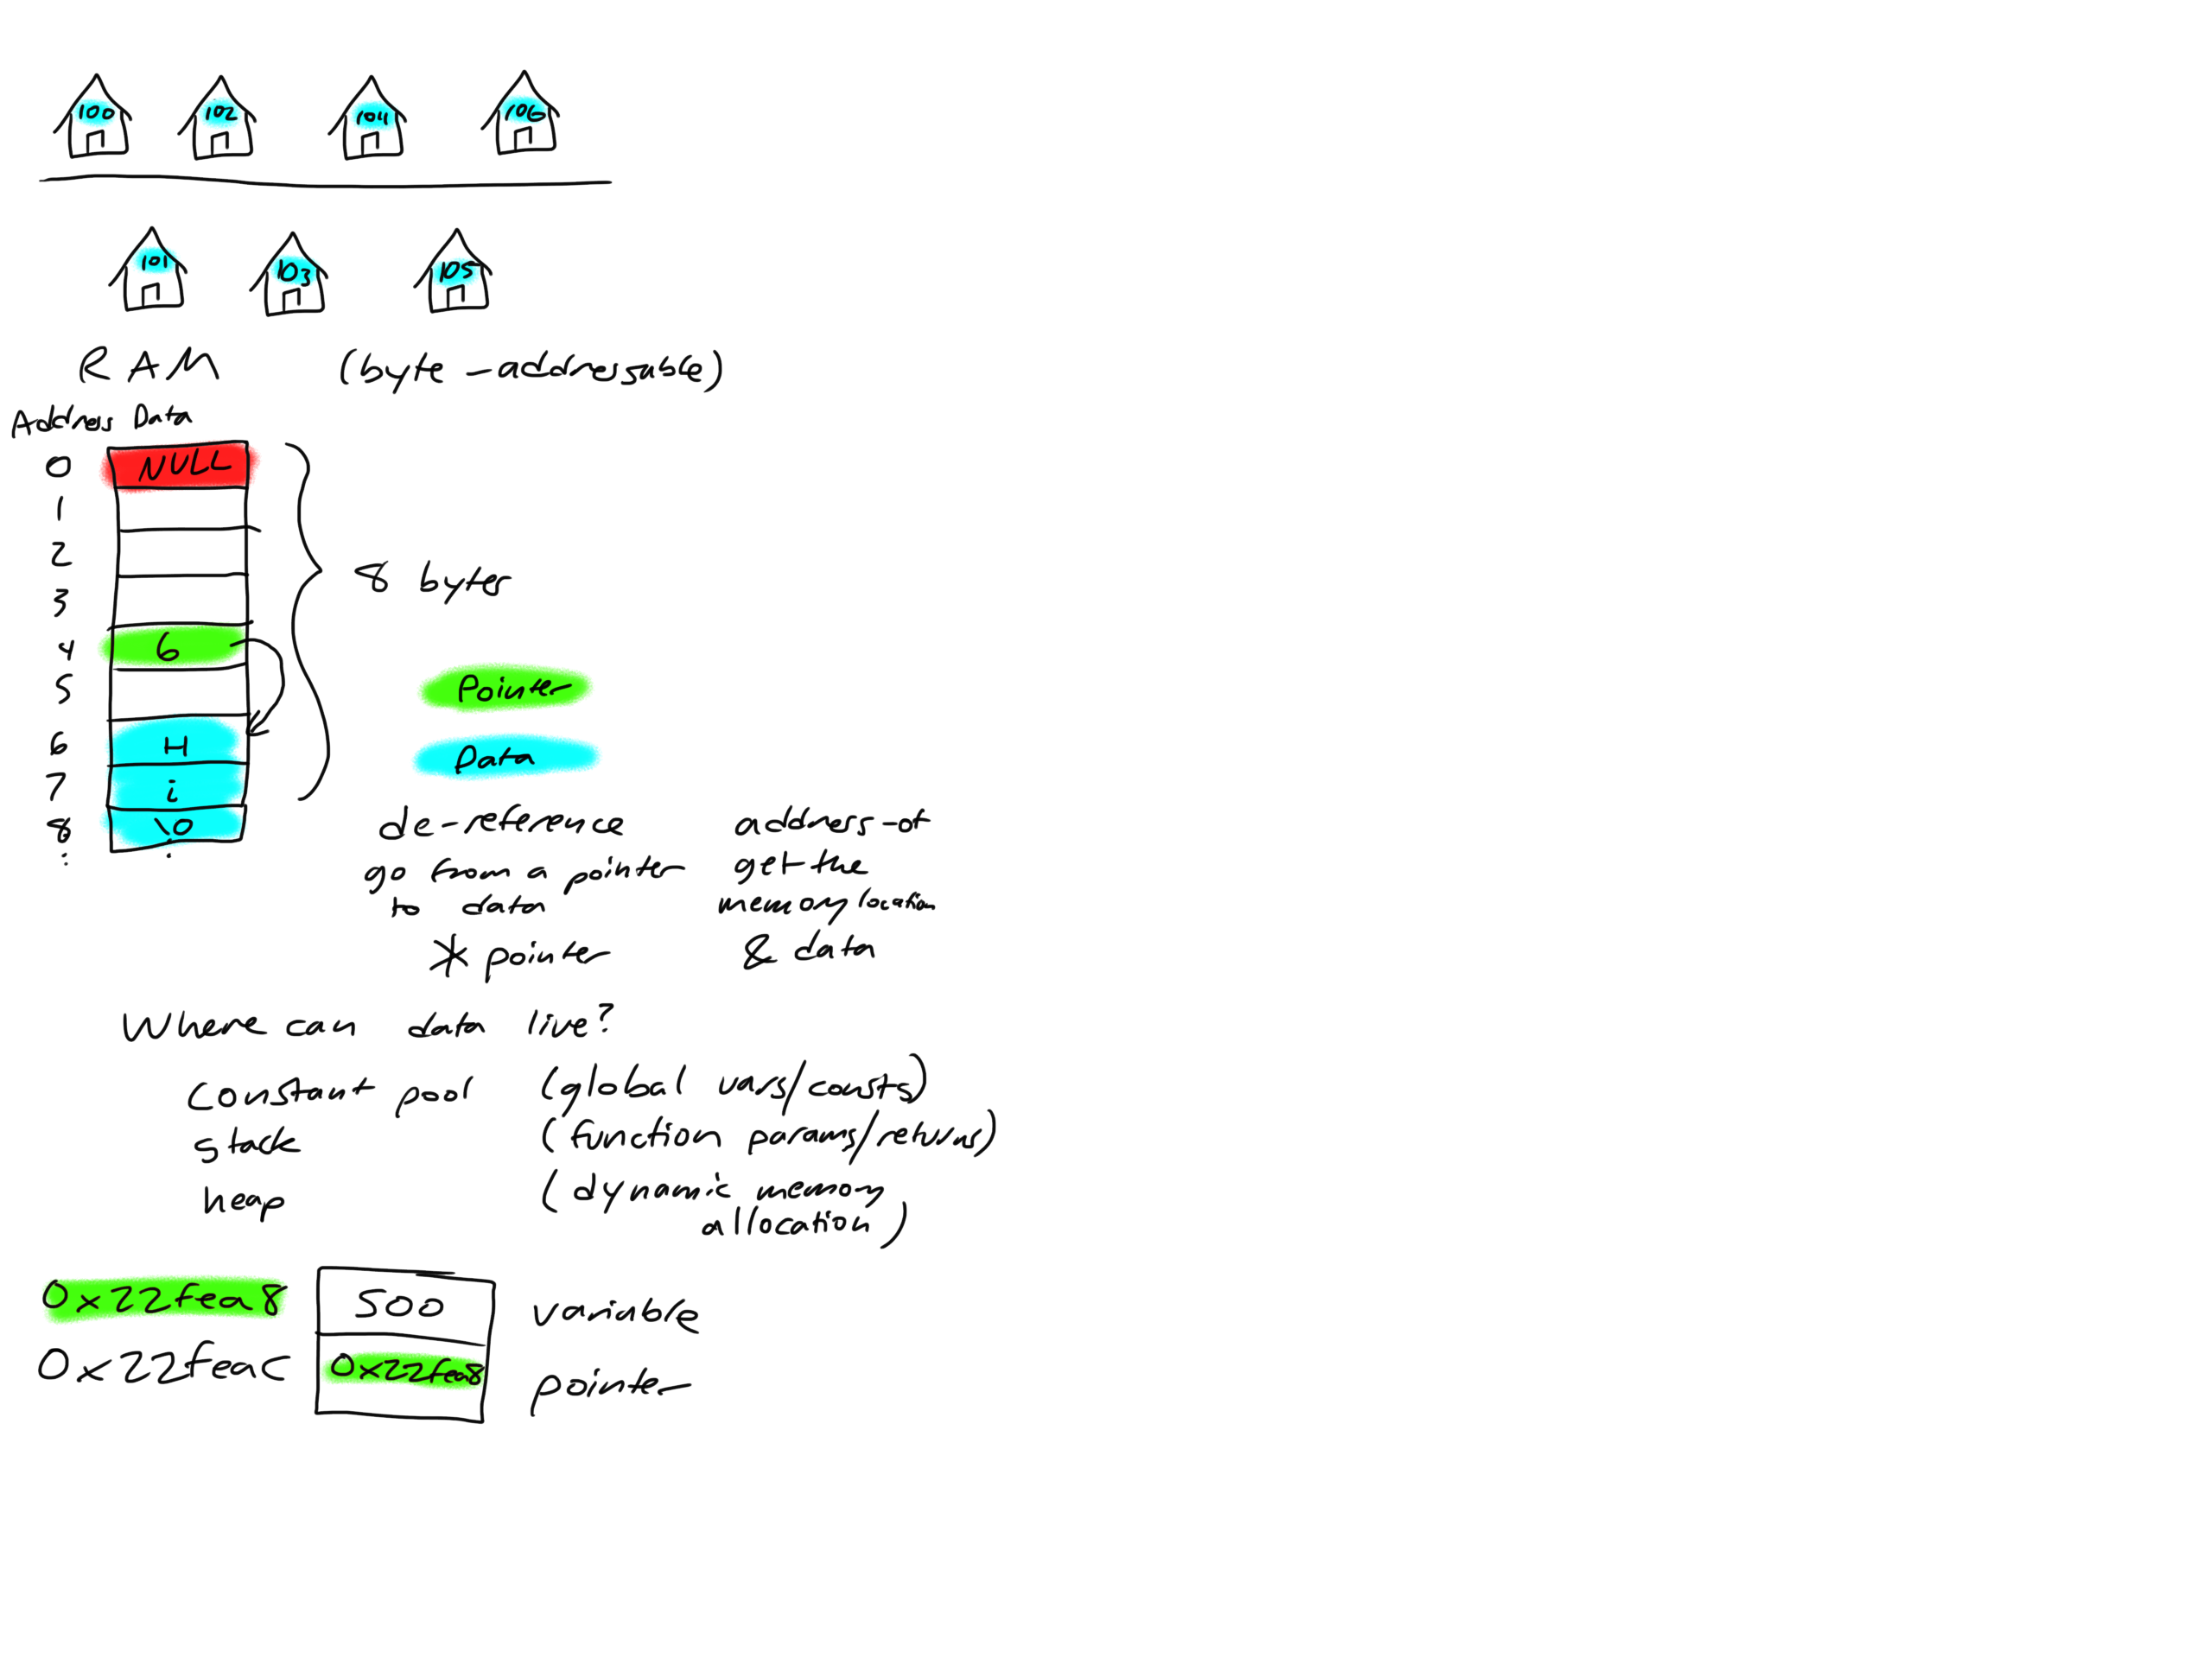 100 102 104 106
101 103 105
RAM (byte-addressable)
Address Data
0 NULL
1
2
3
8 bytes
4 6
5
Pointer
6 H
Data
7 i
8 \0
: :
de-reference
go from a pointer
to data
* pointer
address-of
get the
memory location
& data
Where can data live?
constant pool (global vars/consts)
stack (function params/returns)
heap (dynamic memory
allocation)
0x22fea8 500 variable
0x22feac 0x22fea8 pointer